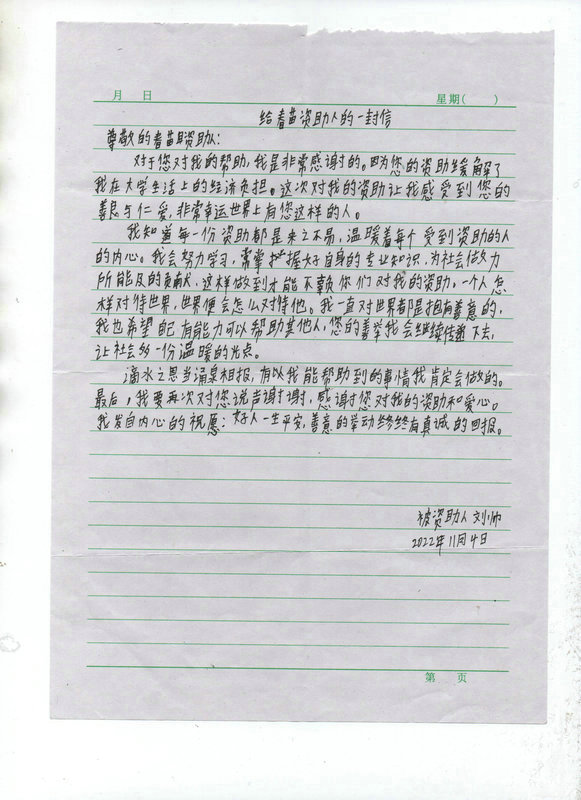 月 日 星期( )
给春苗资助人的一封信
尊敬的春苗资助人:
对于您对我的帮助,我是非常感谢的。因为您的资助缓解了
我在大学生活上的经济负担。这次对我的资助让我感受到您的
善良与仁爱,非常幸运世界上有您这样的人。
我知道每一份资助都是来之不易,温暖着每个受到资助的人
的内心。我会努力学习,掌握好自身的专业知识,为社会做力
所能及的贡献,这样做到才能不负你们对我的资助。一个人怎
样对待世界,世界便会怎么对待他。我一直对世界都是抱有善意的,
我也希望自己有能力可以帮助其他人,您的善举我会继续传递下去,
让社会多一份温暖的光点。
滴水之恩当涌泉相报,有以我能帮助到的事情我肯定会做的。
最后,我要再次对您说声谢谢,感谢您对我的资助和爱心。
我发自内心的祝愿:好人一生平安,善意的举动终终有真诚的回报。
被资助人 刘帅
2022年11月4日
第 页